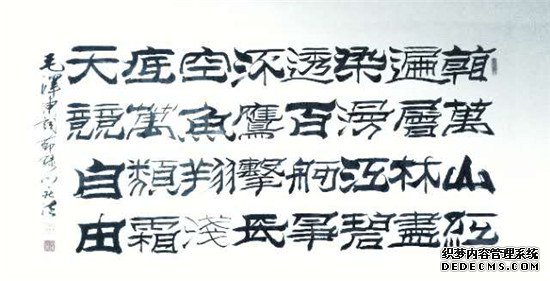 看萬山紅
遍層林盡
染漫江碧
透百舸爭
流鷹擊長
空魚翔淺
底萬類霜
天競自由
毛澤東詞
织梦内容管理系统
DEDECMS.COM